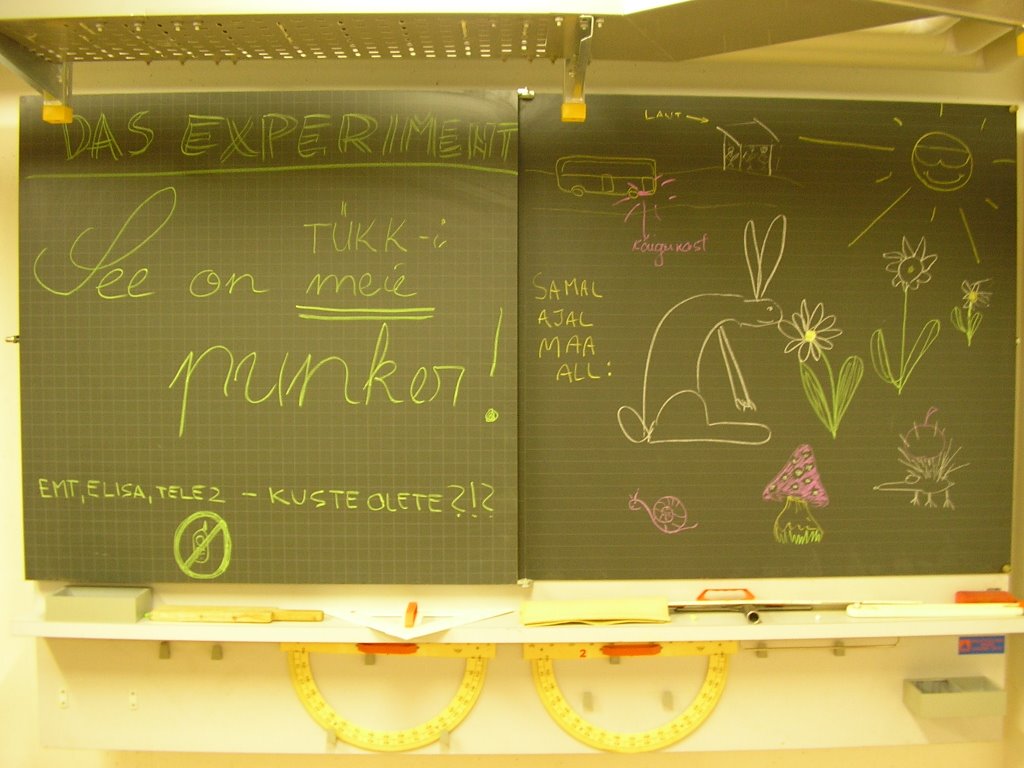 DAS EXPERIMENT
TÜKK-i
See on meie
punker!
EMT, ELISA, TELE2 - KUSTE OLETE?!?
LAUT
käigukast
SAMAL
AJAL
MAA
ALL:
2